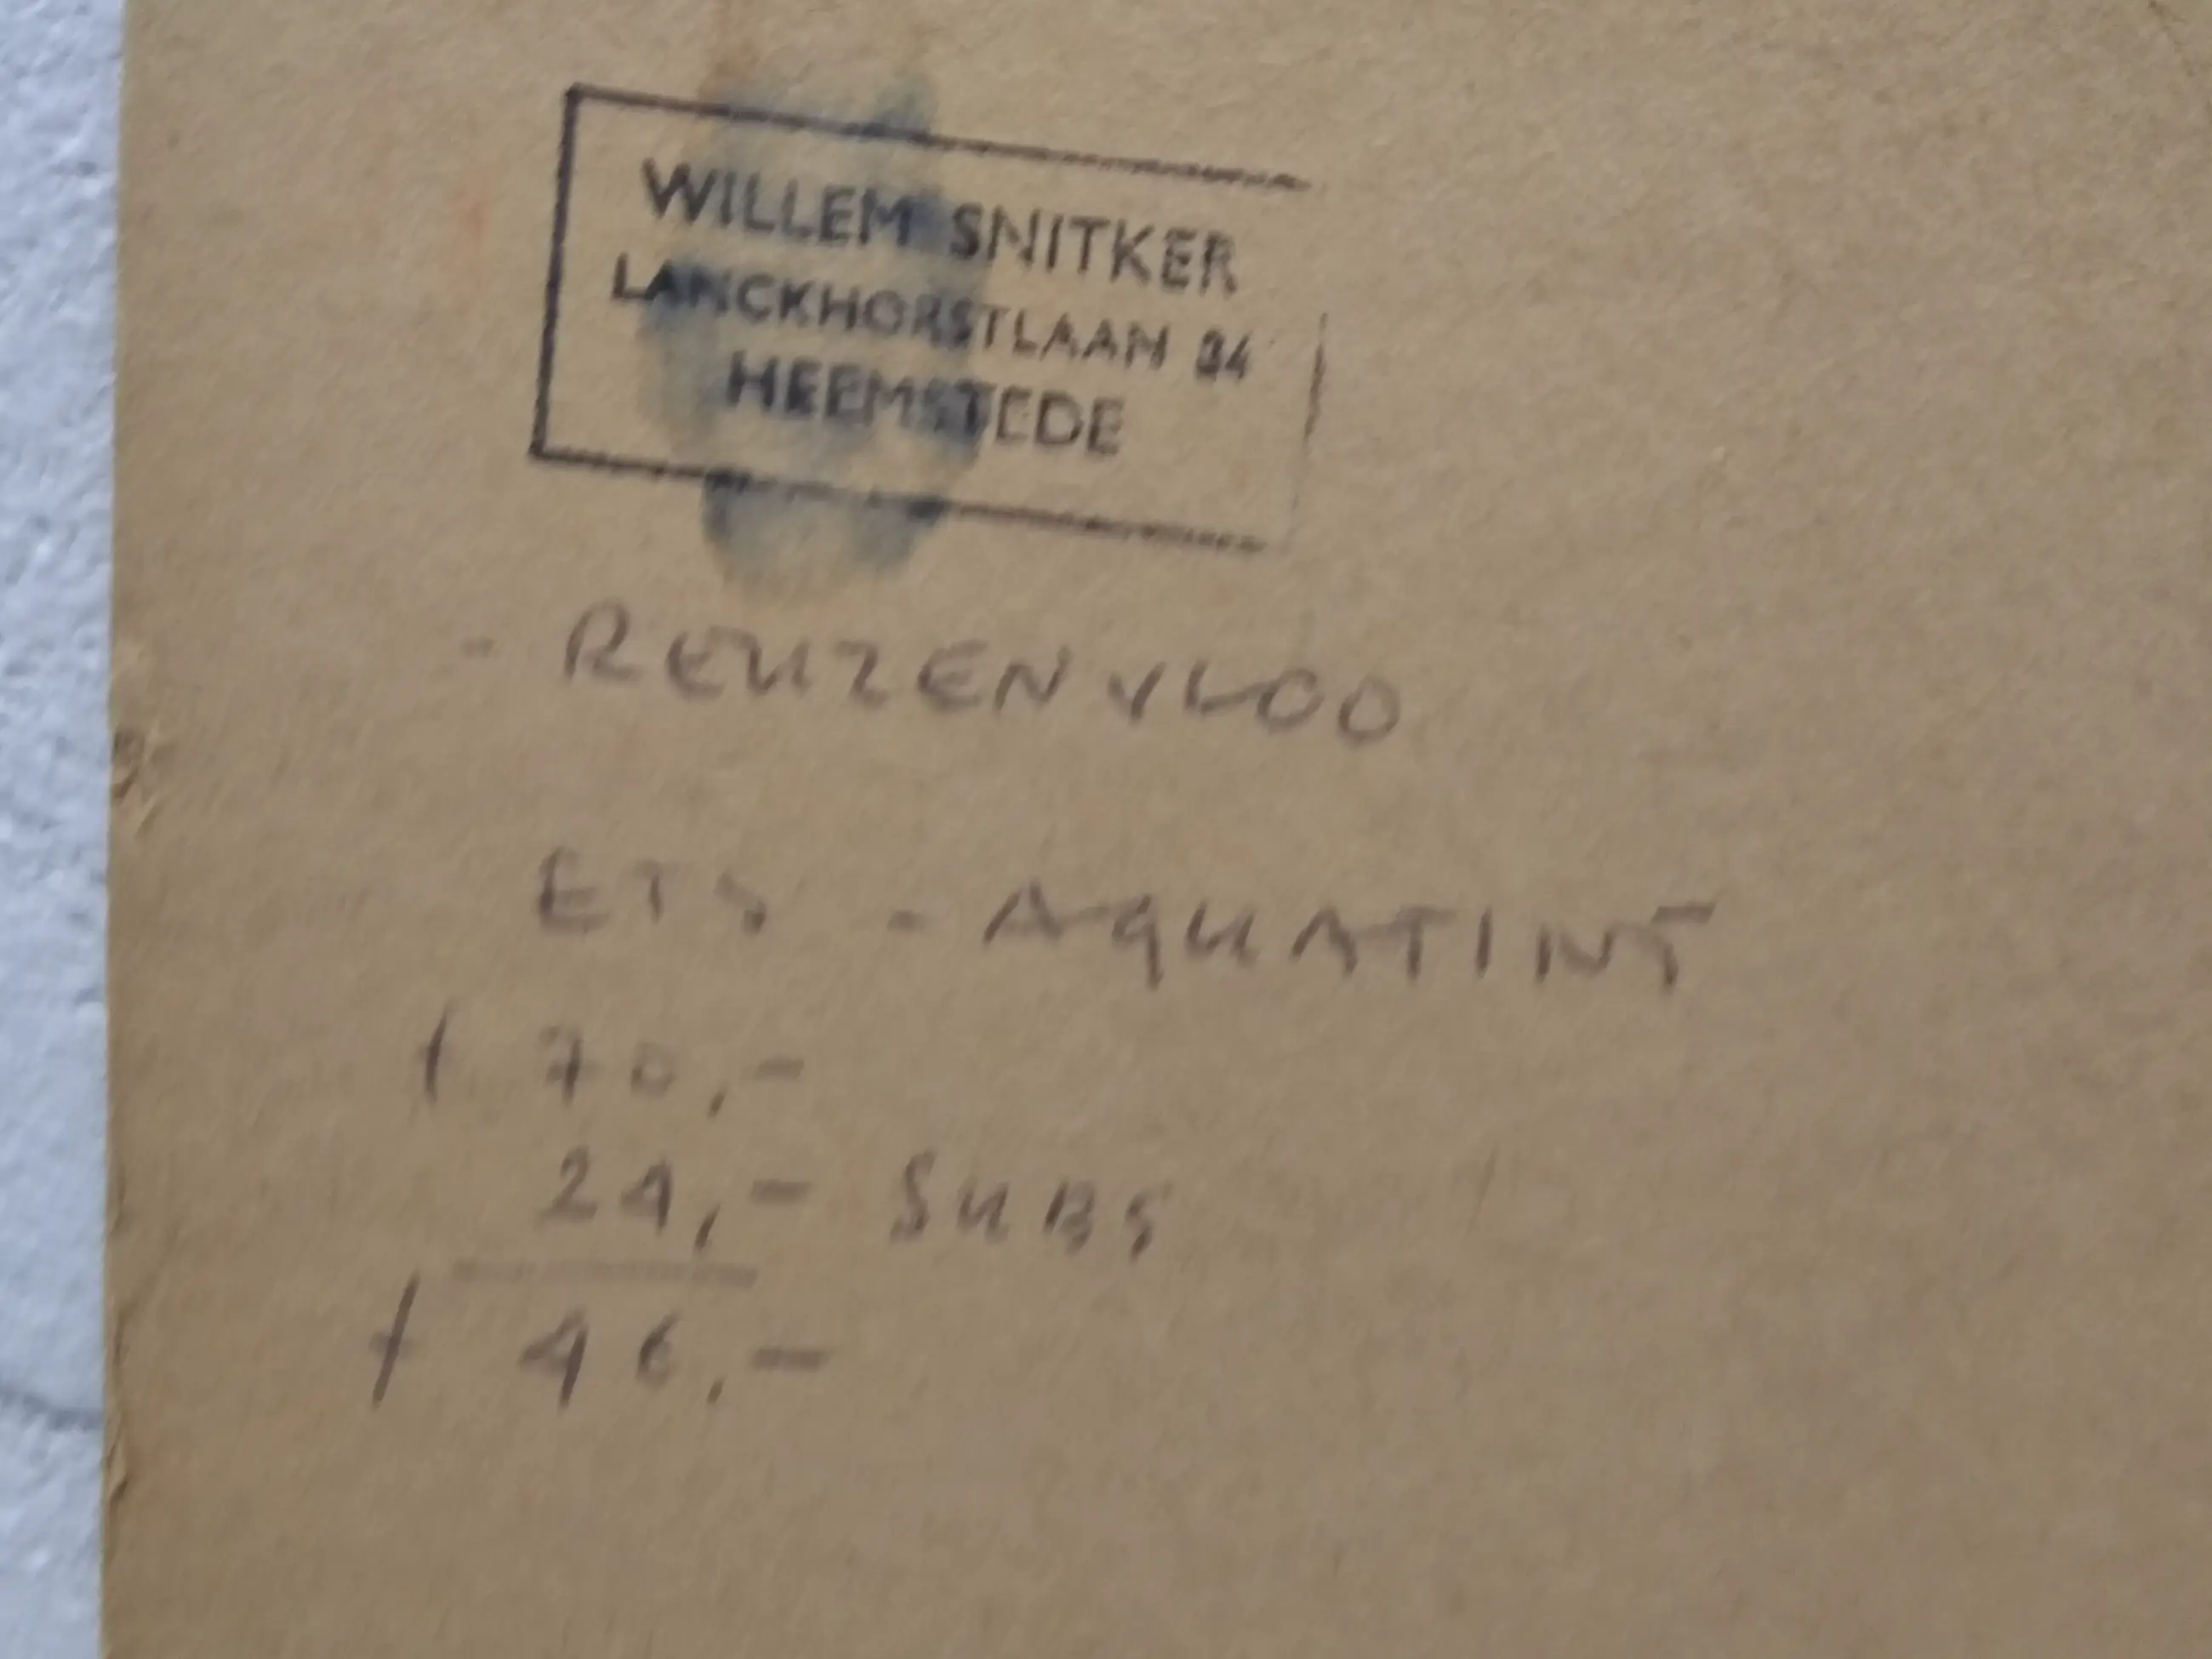 WILLEM SNITKER
LANCKHORSTLAAN 84
HEEMSTEDE
- REUZENVLOO
ETS - AQUATINT
ƒ 70,-
24,- SUBS
ƒ 46,-